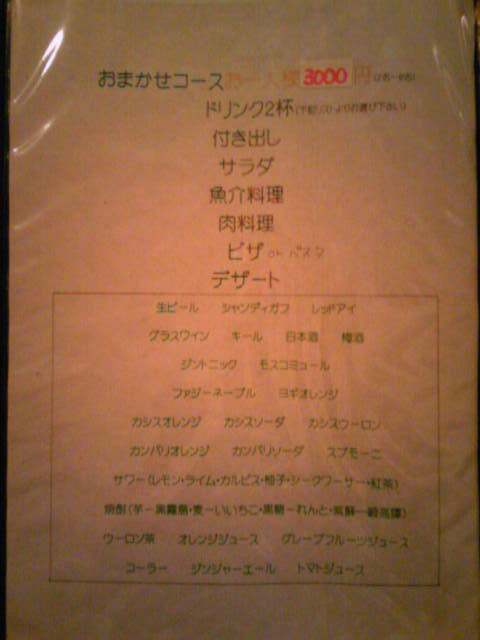 おまかせコース お一人様 3000 円
ドリンク2杯(下記リストよりお選び下さい)
付き出し
サラダ
魚介料理
肉料理
ピザ or パスタ
デザート
生ビール シャンディガフ レッドアイ
グラスワイン キール 日本酒 梅酒
ジントニック モスコミュール
ファジーネーブル ヨギオレンジ
カシスオレンジ カシスソーダ カシスウーロン
カンパリオレンジ カンパリソーダ スプモーニ
サワー(レモン・ライム・カルピス・柚子・シークワーサー・紅茶)
焼酎(芋ー黒霧島・麦ーいいちこ・黒糖ーれんと・
ウーロン茶 オレンジジュース グレープフルーツジュース
コーラー ジンジャーエール トマトジュース